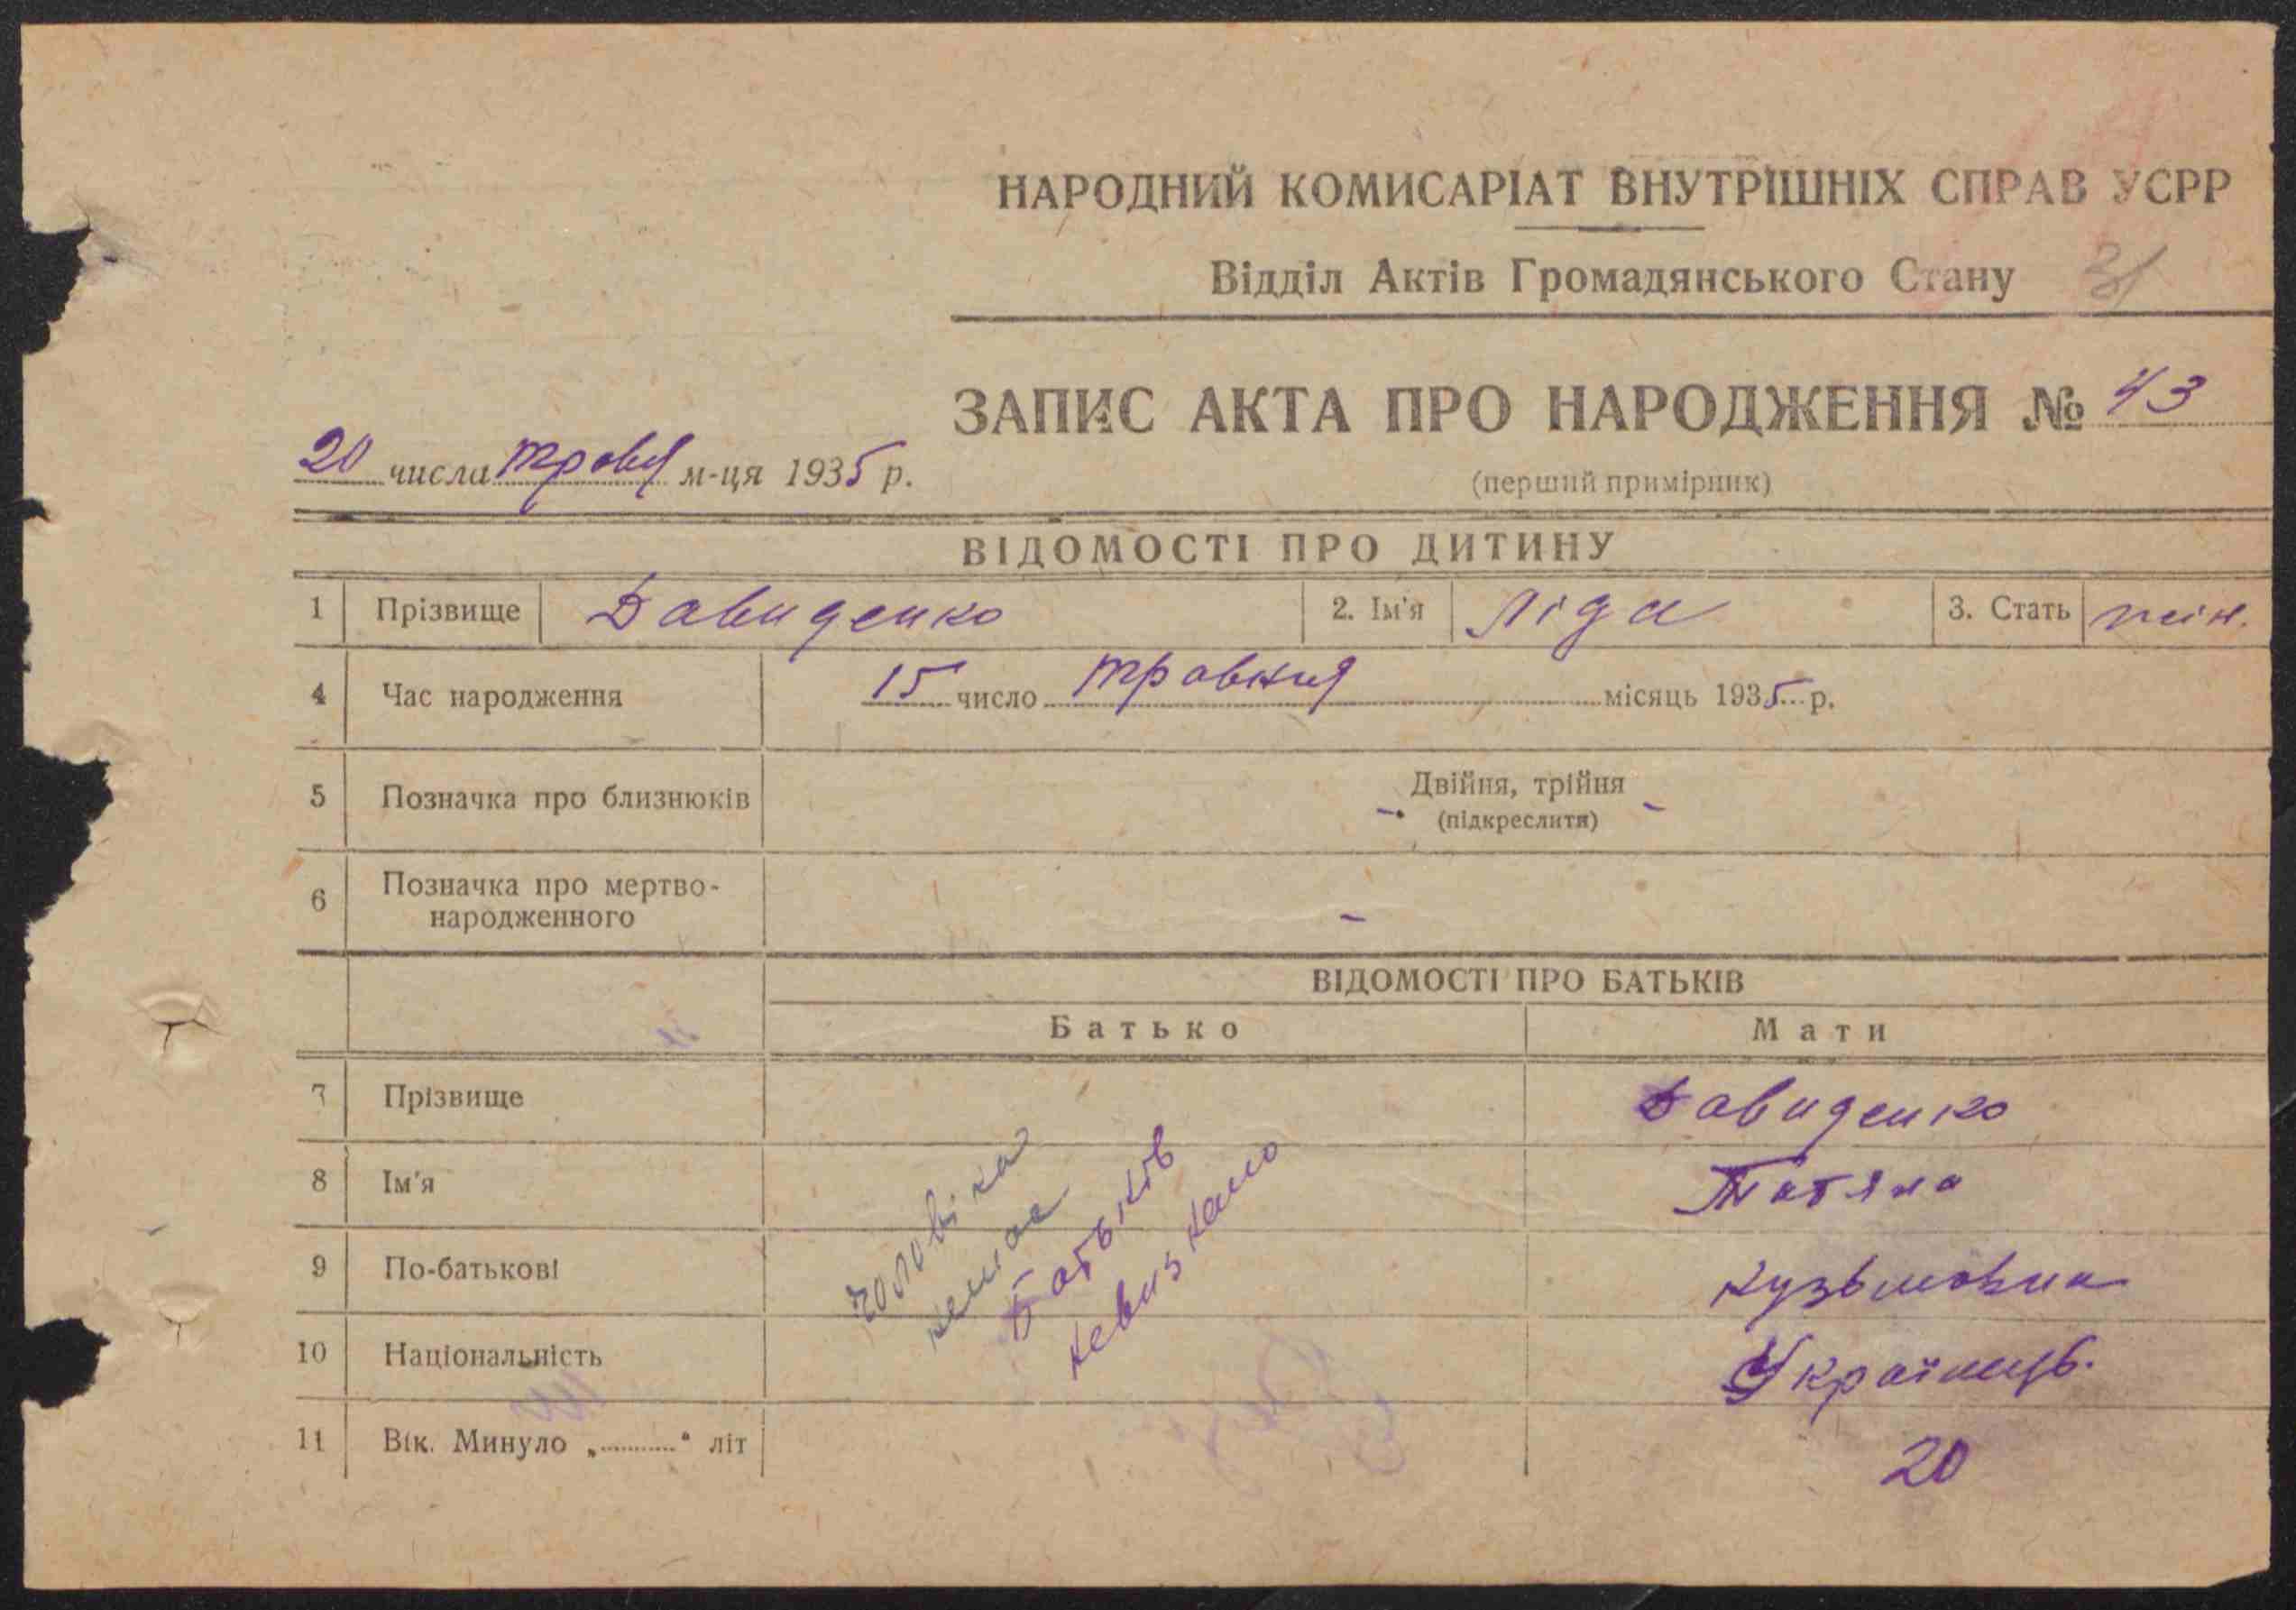 НАРОДНИЙ КОМИСАРІАТ ВНУТРІШНІХ СПРАВ УСРР
Відділ Актів Громадянського Стану 31
ЗАПИС АКТА ПРО НАРОДЖЕННЯ № 43
20 числа травня м-ця 1935 р.
(перший примірник)
ВІДОМОСТІ ПРО ДИТИНУ
1 Прізвище Давиденко 2. Ім'я Ліда 3. Стать жін.
4 Час народження 15 число травня місяць 1935 р.
5 Позначка про близнюків Двійня, трійня
(підкреслити)
6 Позначка про мертво-
народженного -
ВІДОМОСТІ ПРО БАТЬКІВ
Батько Мати
7 Прізвище Давиденко
8 Ім'я Татяна
9 По-батькові Кузьмовна
10 Національність Українць.
11 Вік. Минуло „..........“ літ 20
чоловіка
немає
Батьків